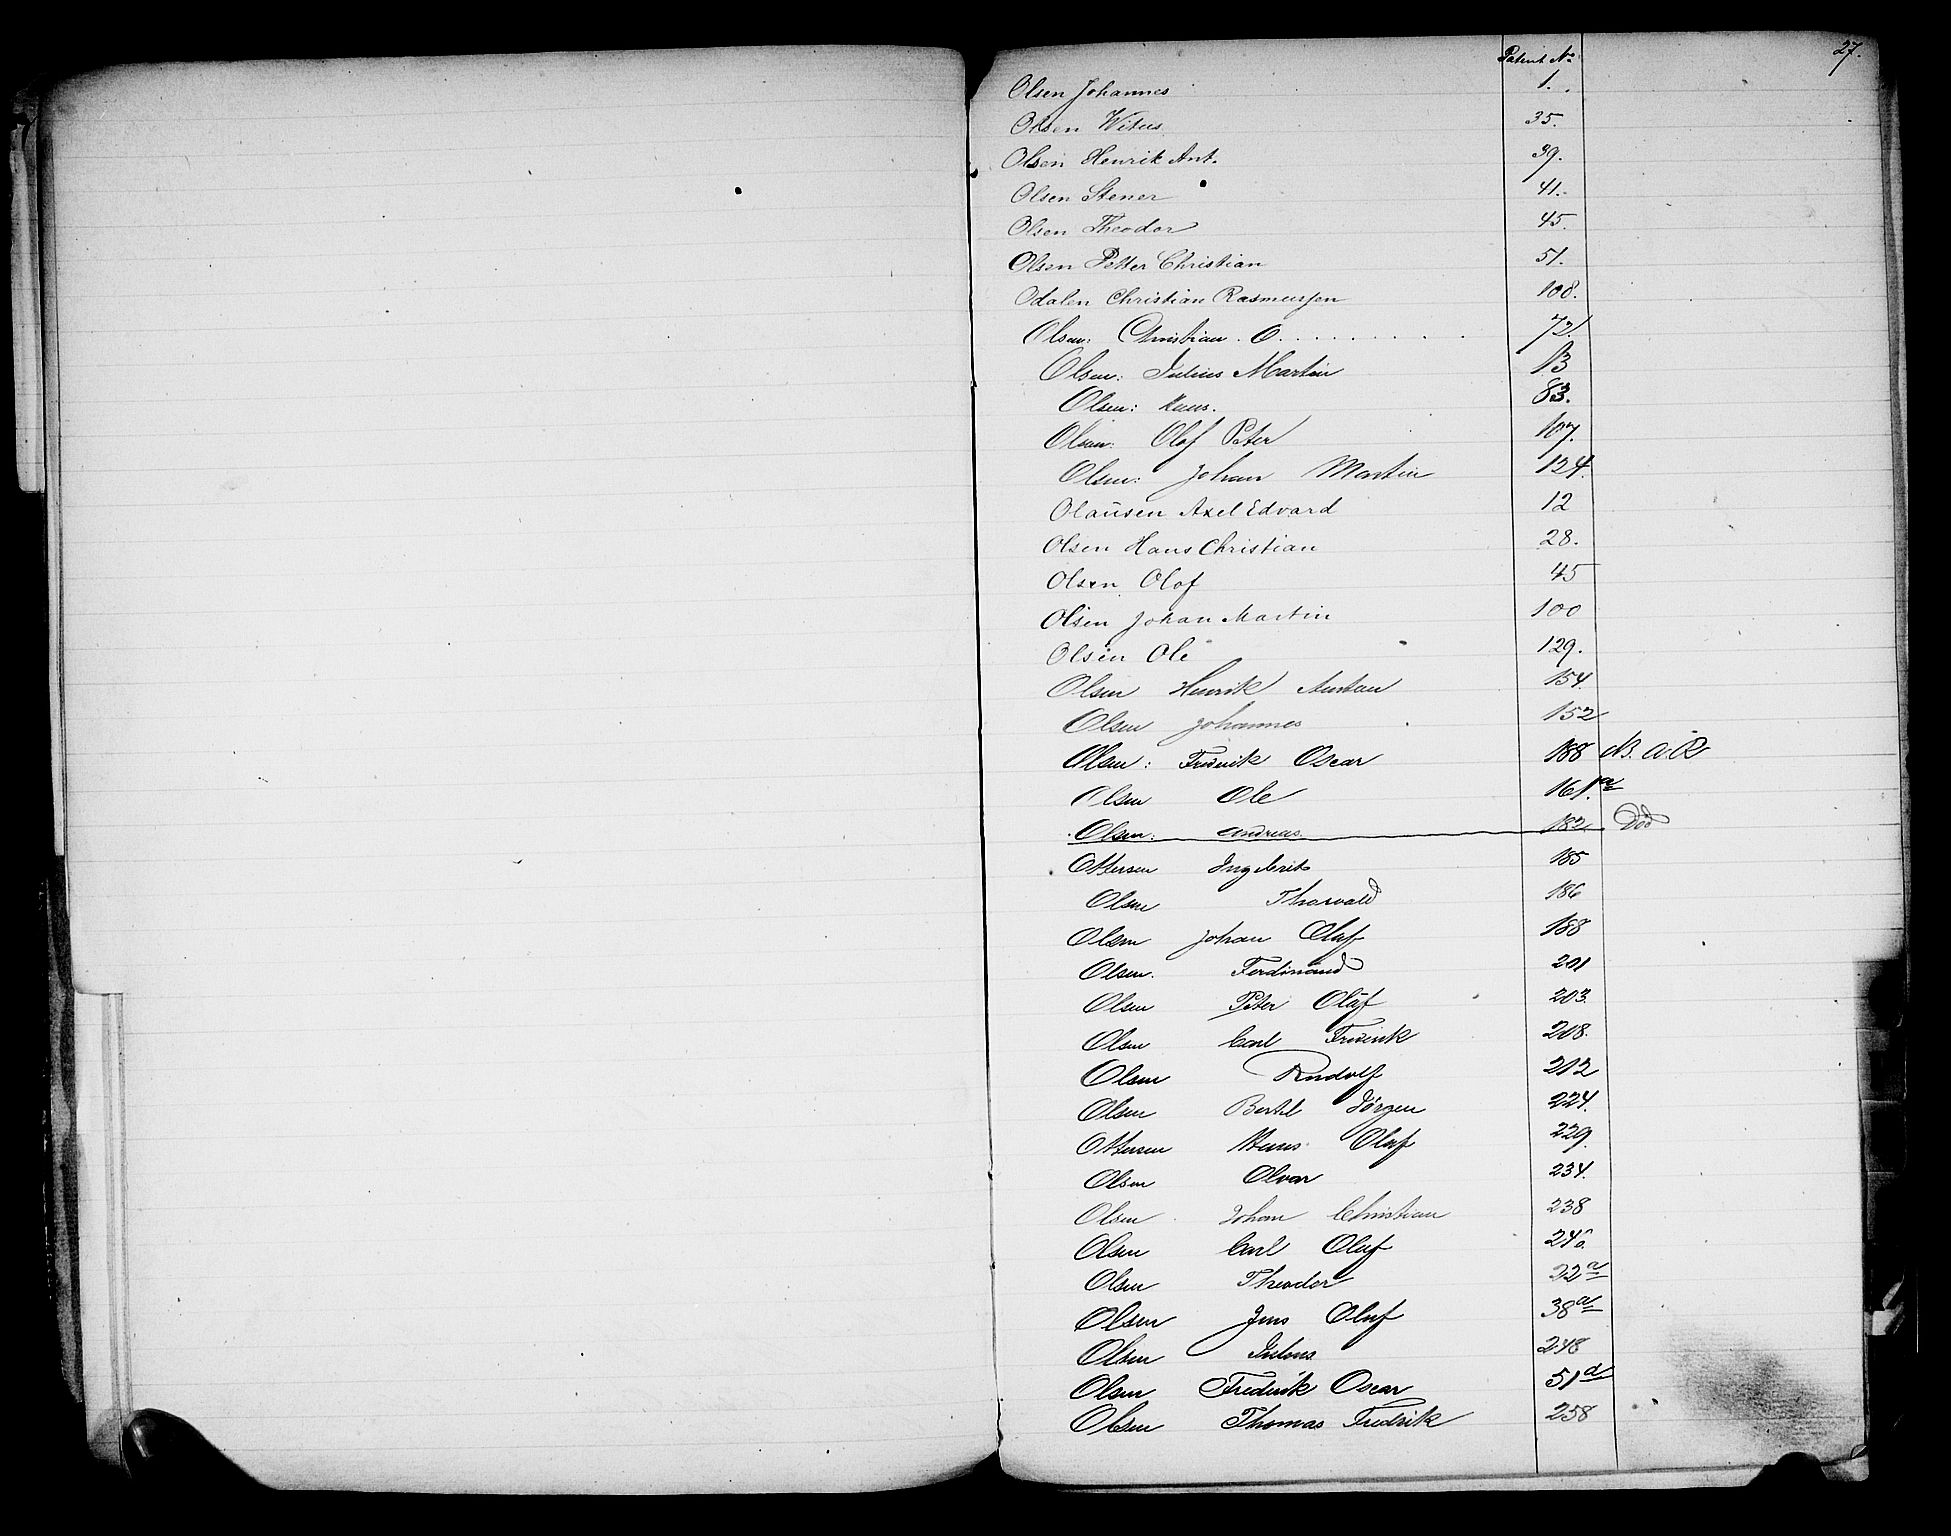 Patent No 27.
Olsen Johannes 1.
Olsen Witus 35.
Olsen Henrik Ant. 39.
Olsen Stener 41.
Olsen Theodor 45.
Olsen Petter Christian 51.
Odalen Christian Rasmussen 108.
Olsen: Christian. O. 72.
Olsen: Julius Martin 13
Olsen: 83.
Olsen: Olaf Peter 107.
Olsen: Johan Martin 124.
Olausen Axel Edvard 12
Olsen Hans Christian 28.
Olsen Olof 45
Olsen Johan Martin 100
Olsen Ole 129.
Olsen Henrik Anton 154.
Olsen Johannes 152
Olsen: Fredrik Oscar 188 N. O. R
Olsen Ole 161.a
Olsen: Andreas. 182. Död
Ottersen Ingebrit 185
Olsen Thorvald 186
Olsen Johan Oluf 188
Olsen. Ferdinand 201
Olsen Peter Oluf 203.
Olsen Carl Fredrik 208.
Olsen Rudolf 212
Olsen Bertel Jörgen 224.
Ottersen Hans Oluf 229.
Olsen Olvar 234.
Olsen Johan Christian 238
Olsen Carl Oluf
Olsen Theodor 22a
Olsen Jens Oluf 38a
Olsen Julius 248
Olsen Frederik Oscar 51a
Olsen Thomas Fredrik 258